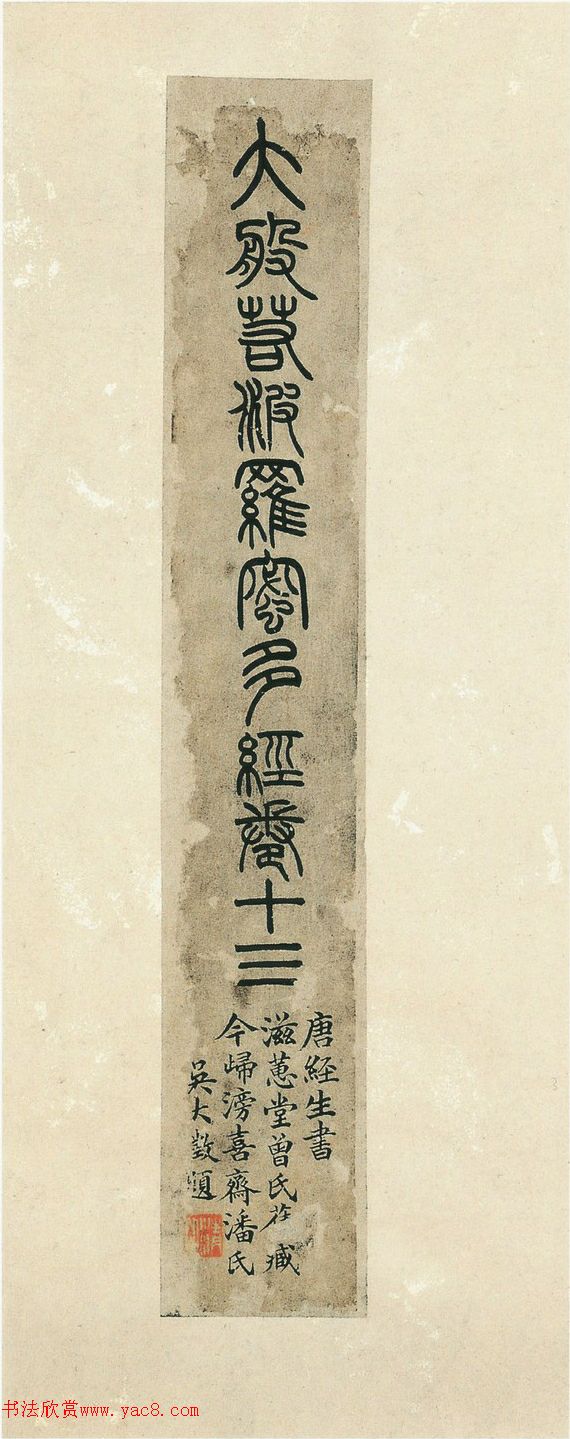 大般若波羅蜜多經卷十三
唐經生書
滋蕙堂曾氏舊臧
今歸滂喜齋潘氏
吳大澂題
书法欣赏www.yac8.com